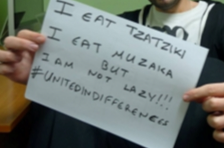 I EAT TZATZIKI
I EAT MUZAKA
BUT
I AM NOT LAZY!!!
#UNITEDINDIFFERENCE